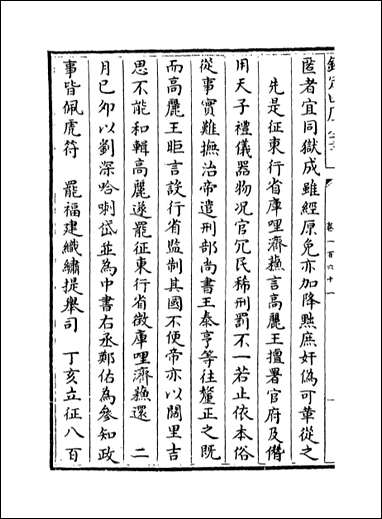 匿者宜同獄成雖經原免亦加降黜庶奸偽可革從之
先是征東行省庫哩濟蘇言高麗王擅署官府及僭
用天子禮儀器物况官冗民稀刑罰不一若止依本俗
從事實難撫治帝遣刑部尚書王泰亨等往釐正之既
而高麗王昛言設行省監制其國不便帝亦以闊里吉
思不能和輯高麗遂罷征東行省徵庫哩濟蘇還 二
月已夘以劉深哈喇岱並為中書右丞鄭佑為參知政
事皆佩虎符 罷福建織繡提舉司 丁亥立征八百